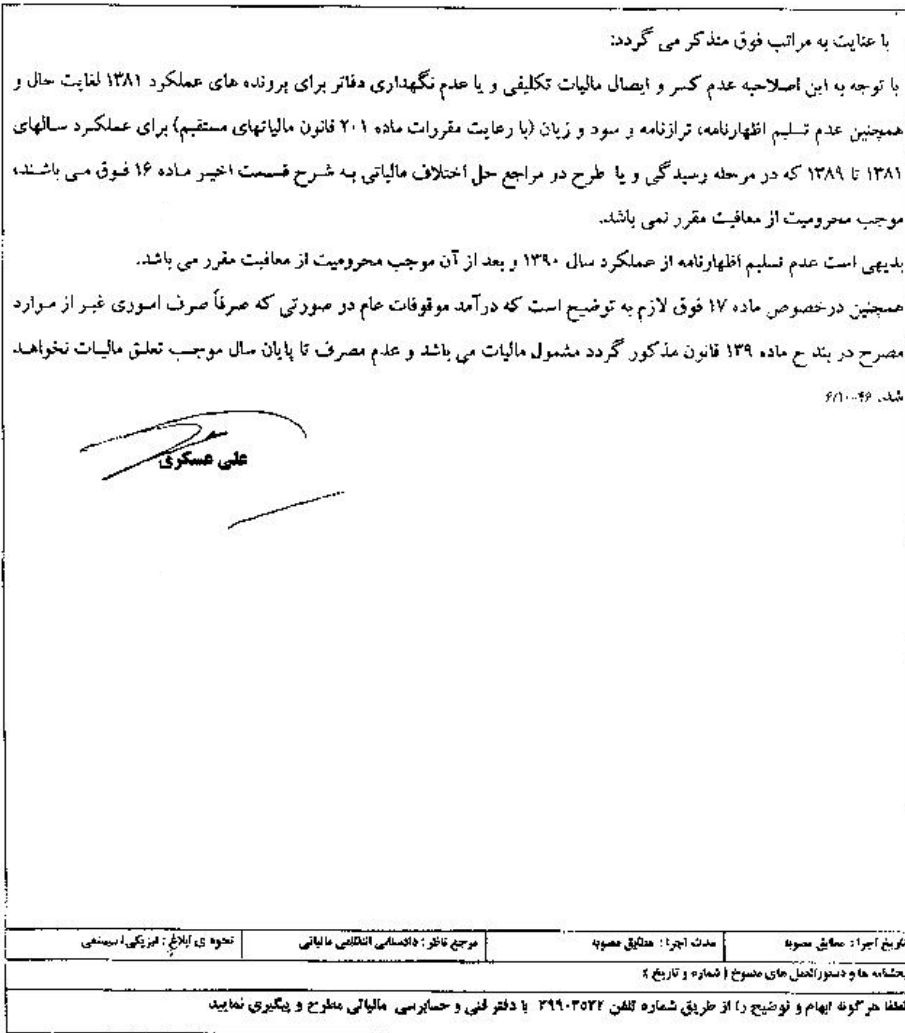 با عنایت به مراتب فوق متذکر می گردد:
با توجه به این اصلاحیه عدم کسر و ایصال مالیات تکلیفی و یا عدم نگهداری دفاتر برای پرونده های عملکرد ۱۳۸۱ لغایت حال و
همچنین عدم تسلیم اظهارنامه، ترازنامه و سود و زیان (با رعایت مقررات ماده ۲۰۱ قانون مالیاتهای مستقیم) برای عملکرد سالهای
۱۳۸۱ تا ۱۳۸۹ که در مرحله رسیدگی و یا طرح در مراجع حل اختلاف مالیاتی به شرح قسمت اخیر ماده ۱۶ فوق می باشند،
موجب محرومیت از معافیت مقرر نمی باشد.
بدیهی است عدم تسلیم اظهارنامه از عملکرد سال ۱۳۹۰ و بعد از آن موجب محرومیت از معافیت مقرر می باشد.
همچنین درخصوص ماده ۱۷ فوق لازم به توضیح است که درآمد موقوفات عام در صورتی که صرفاً صرف اموری غیر از موارد
مصرح در بند ح ماده ۱۳۹ قانون مذکور گردد مشمول مالیات می باشد و عدم مصرف تا پایان سال موجب تعلق مالیات نخواهد
شد. ۶/۱۰-۴۶
علی عسکری
تاریخ اجرا: مطابق مصوبه
مدت اجرا: مطابق مصوبه
مرجع ناظر: دادستانی انتظامی مالیاتی
نحوه ی ابلاغ: فیزیکی/ سیستمی
بخشنامه ها و دستورالعمل های منسوخ (شماره و تاریخ):
لطفا هرگونه ابهام و توضیح را از طریق شماره تلفن ۳۹۹۰۳۵۲۲ با دفتر فنی و حسابرسی مالیاتی مطرح و پیگیری نمایید